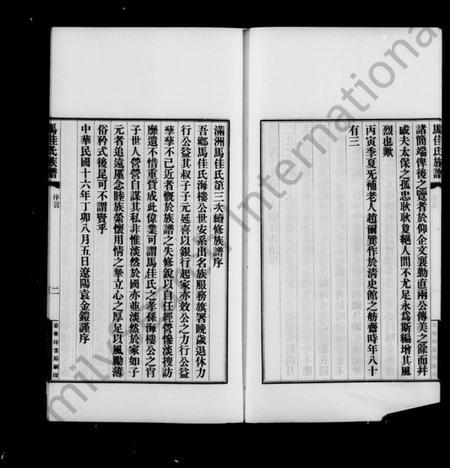 馬佳氏族譜
諸簡端俾後之覽者於仰企文襄勤直兩公傳美之餘而幷
咸夫太保之孤忠耿耿夐絕人間不尤足永為斯編增其風
烈也歟
丙寅季夏死補老人趙爾巽作於清史館之舫齋時年八十
有三
滿洲馬佳氏第三次續修族譜序
吾鄉馬佳氏海樓公世安系出名族服務旗署晚歲退休力
行公益其叔子子元延喜以銀行起家亦效公之力行公益
孳孳不已近者慨於族譜之失修銳以自任經營慘淡搜訪
靡遺不惜重貲成此偉業可謂馬佳氏之孝孫海樓公之肖
子世人營營自謀其私非惟淡然於國亦並淡然於家如子
元者追遠厪念睦族縈懷用情之摯立心之厚足以風勵薄
俗矜式後昆可不謂賢乎
中華民國十六年丁卯八月五日遼陽袁金鎧謹序
馬佳氏族譜
序言
二
Filmed by milySearch International